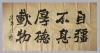 自強
不息
厚德
載物